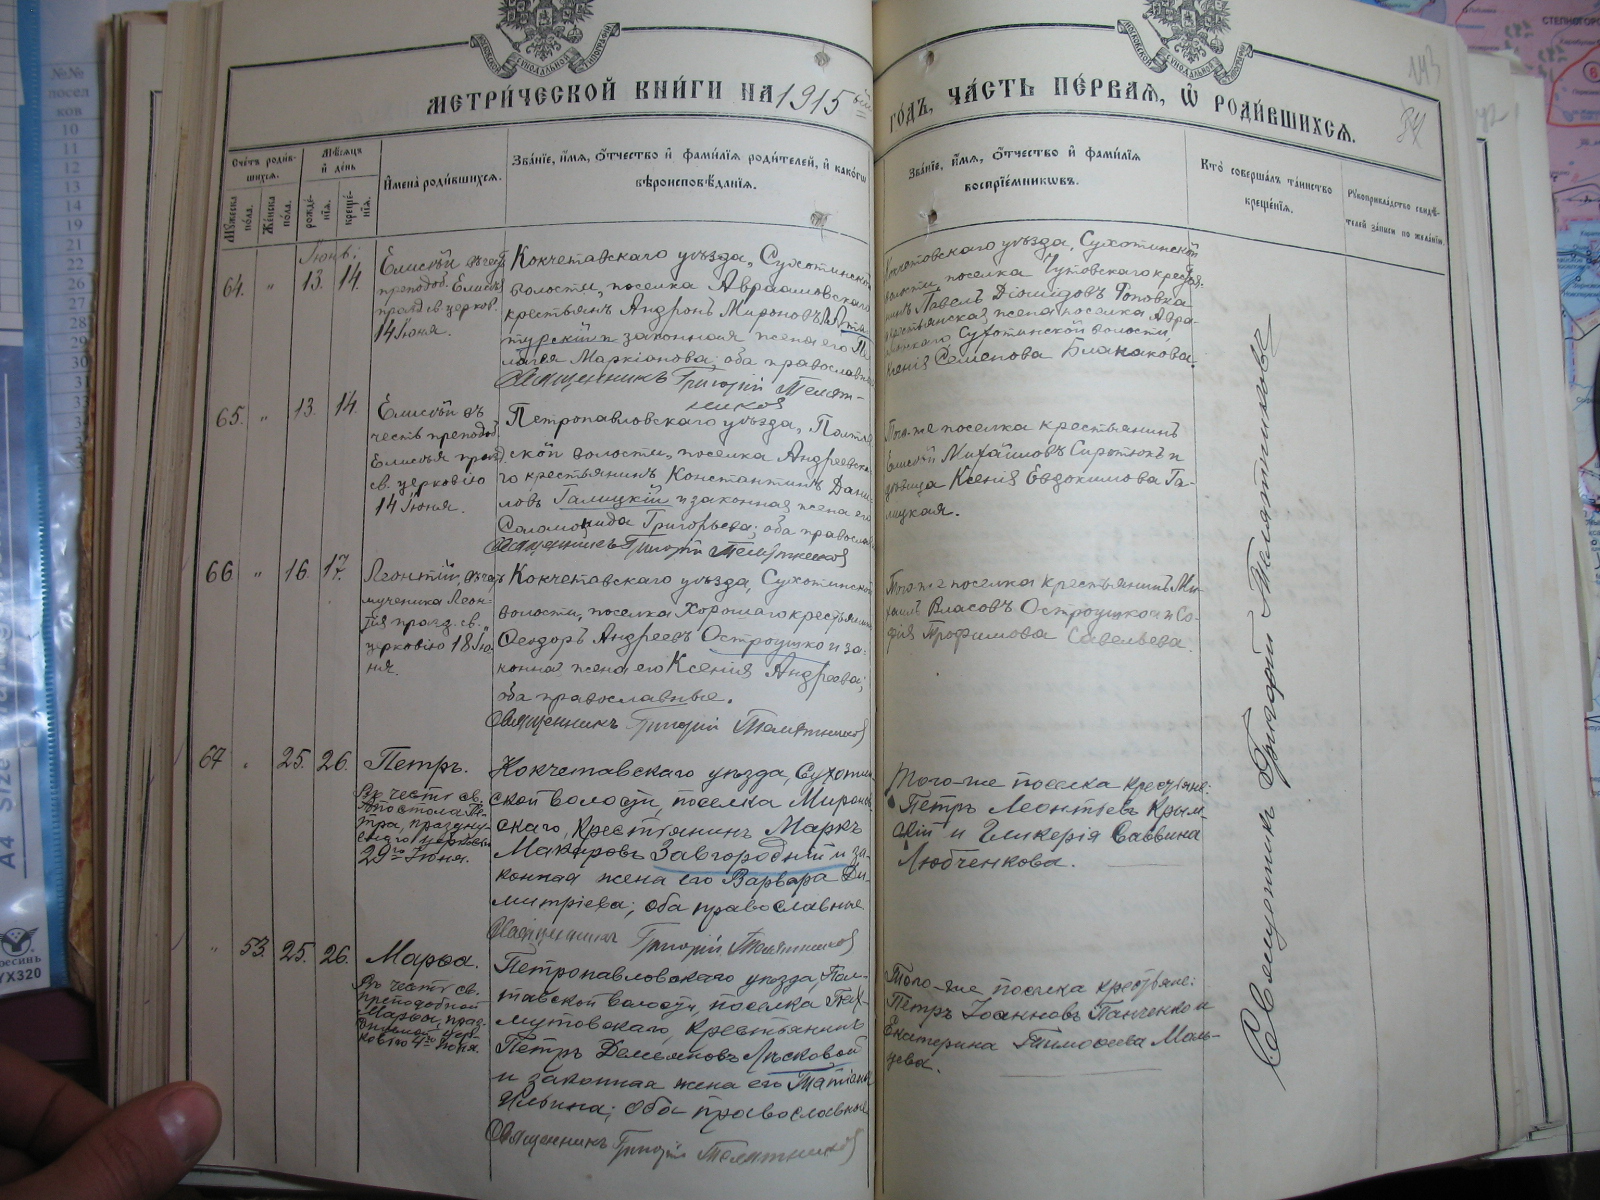 МЕТРИ́ЧЕСКОЙ КНИ́ГИ НА 1915 ый
ГО́ДЪ, ЧА́СТЬ ПЕ́РВАЯ, Ѡ҆ РОДИ́ВШИХСЯ.
143
Сче́тъ роди́вшихся.
Мѣ́сяцъ и҆ де́нь
Му́жеска по́ла.
Же́нска по́ла.
рожде́нїя.
креще́нїя.
И҆мена̀ роди́вшихся.
Зва́нїе, и҆́мя, ѻ҆́тчество и҆ фами́лїя роди́телей, и҆ како́гѡ
вѣроисповѣ́данїя.
Зва́нїе, и҆́мя, ѻ҆́тчество и҆ фами́лїя
воспрїе́мникѡвъ.
Кто̀ соверша́лъ та́инство
креще́нїя.
Рꙋкоприкла́дство свидѣ́-
телей за́писи по жела́нїю.
Іюнь:
64. „ 13. 14.
Елисѣй въ честь
преподоб. Елисѣя
празд. св. церков.
14 Іюня.
Кокчетавскаго уѣзда, Сухотинской
волости, поселка Авраамовскаго
крестьянъ Андронъ Мироновъ
турскій и законная жена его Пе-
лагея Маркіанова; оба православные
Священникъ Григорій Телят-
никовъ
Кокчетавскаго уѣзда, Сухотинской
волости, поселка Чутовскаго крестья-
нинъ Павелъ Діомидовъ Головка
крестьянская жена поселка Авра-
амовскаго Сухотинской волости,
Ксенія Семенова Блакакова.
65. „ 13. 14.
Елисѣй въ
честь преподоб.
Елисѣя празд.
св. церковію
14 Іюня.
Петропавловскаго уѣзда, Полтав-
ской волости, поселка Андреевска-
го крестьянинъ Константинъ Дани-
ловъ Галицкій и законная жена его
Саламонида Григорьева; оба православ.
Священникъ Григорій Телятниковъ
Того-же поселка крестьянинъ
Елисѣй Михайловъ Сиротюкъ и
дѣвица Ксенія Евдокимова Га-
лицкая.
66 „ 16. 17.
Леонтій, въ честь
мученика Леон-
тія празд. св.
церковію 18 Ію-
ня.
Кокчетавскаго уѣзда, Сухотинской
волости, поселка Хорошаго крестьянинъ
Ѳеодоръ Андреевъ Остроушко и за-
конная жена его Ксенія Андреева;
оба православные.
Священникъ Григорій Телятниковъ
Того-же поселка крестьянинъ Ми-
хаилъ Власовъ Остроушко и Со-
фія Трофимова Савельева.
67 „ 25. 26.
Петръ.
Въ честь св.
Апостола Пе-
тра, праздну-
емаго церковью
29го Іюня.
Кокчетавскаго уѣзда, Сухотин-
ской волости, поселка Миронов-
скаго, крестьянинъ Маркъ
Макаровъ Завгородній и за-
конная жена его Варвара Ди-
митріева; оба православные
Священникъ Григорій Телятниковъ
Того-же поселка крестьяне:
Петръ Леонтіевъ Крым-
скій и Гликерія Саввина
Любченкова.
„ 53. 25. 26.
Марѳа.
Въ честь св.
преподобной
Марѳы, праз-
днуемой цер-
ковью 4го Іюля.
Петропавловскаго уѣзда, Пол-
тавской волости, поселка
мутовскаго, крестьянинъ
Петръ Демьяновъ Лысковой
и законная жена его Татіана
Ильина; оба православные
Священникъ Григорій Телятниковъ
Того-же поселка крестьяне:
Петръ Іоанновъ Панченко и
Екатерина Тимоѳеева Маль-
цева.
Священникъ Григорій Телятниковъ
№№
посел
ков
10
11
12
13
14
19
21
22
26
27
28
A4 Size
YX320
СТЕПНОГОР